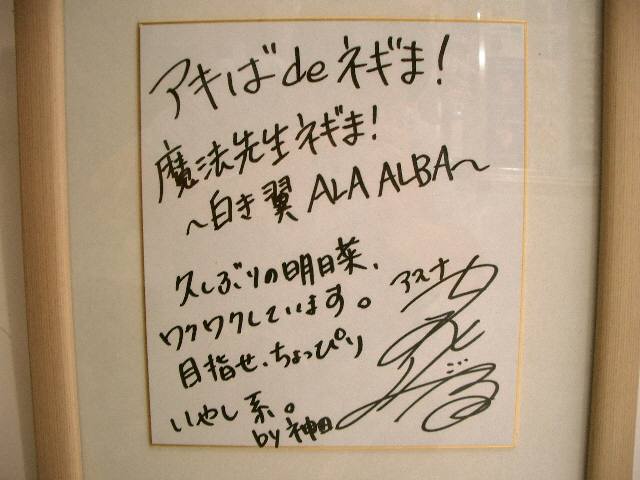 アキばdeネギま!
魔法先生ネギま!
~白き翼 ALA ALBA~
久しぶりの明日菜、
ワクワクしています。
目指せ、ちょっぴり
いやし系。
by 神田
アスナ